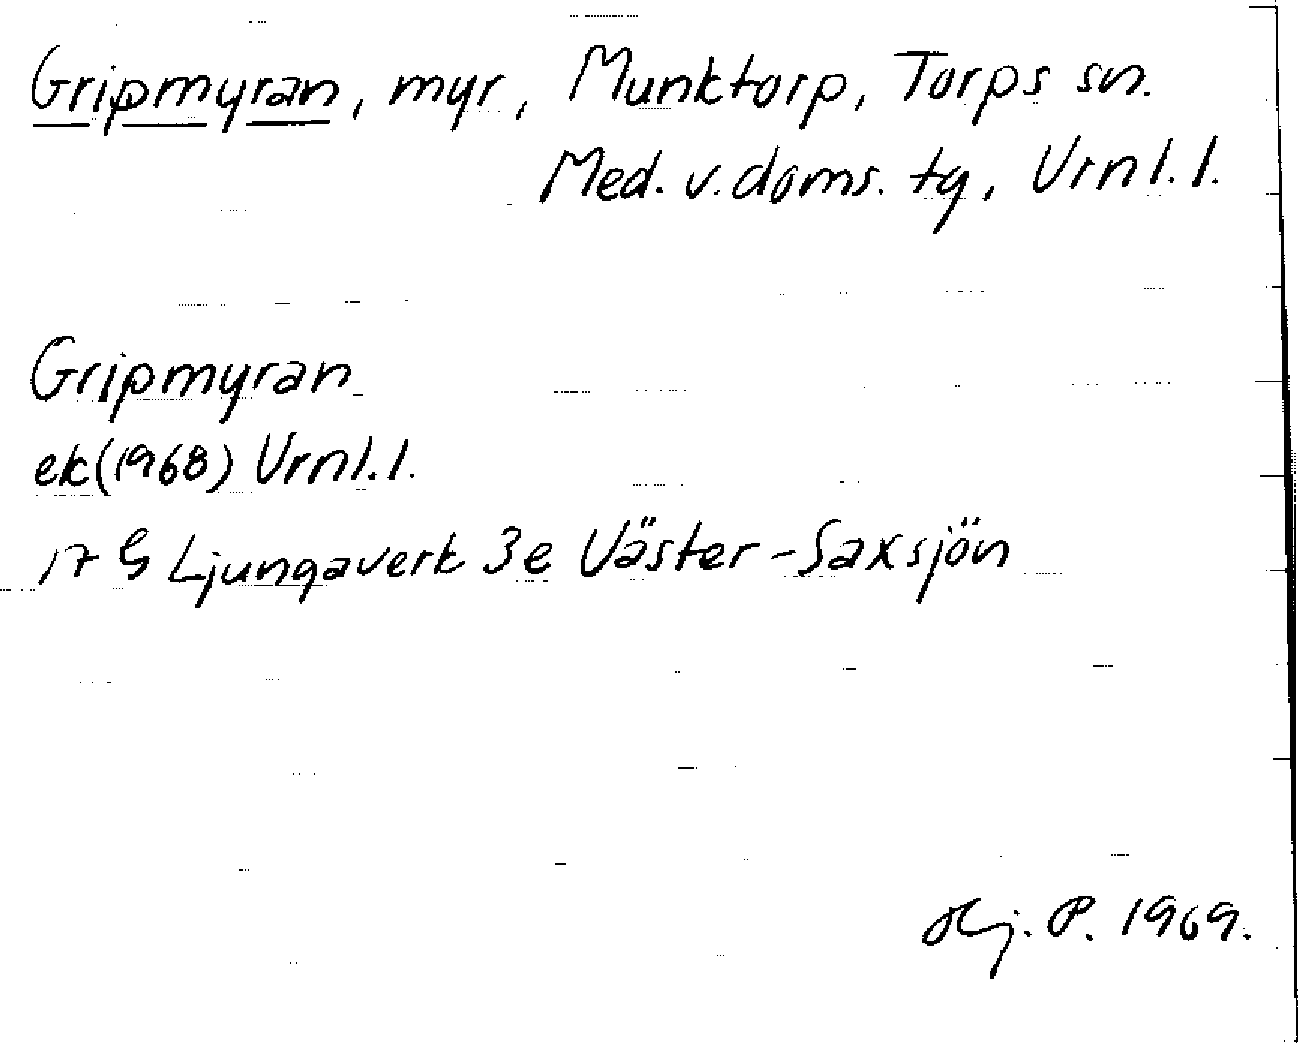 Gripmyran, myr, Munktorp, Torps sn.
Med. v. doms. tg, Vrnl. l.
Gripmyran
ek (1968) Vrnl. l.
17 G Ljungaverk 3e Väster-Saxsjön
Hj. P. 1969.